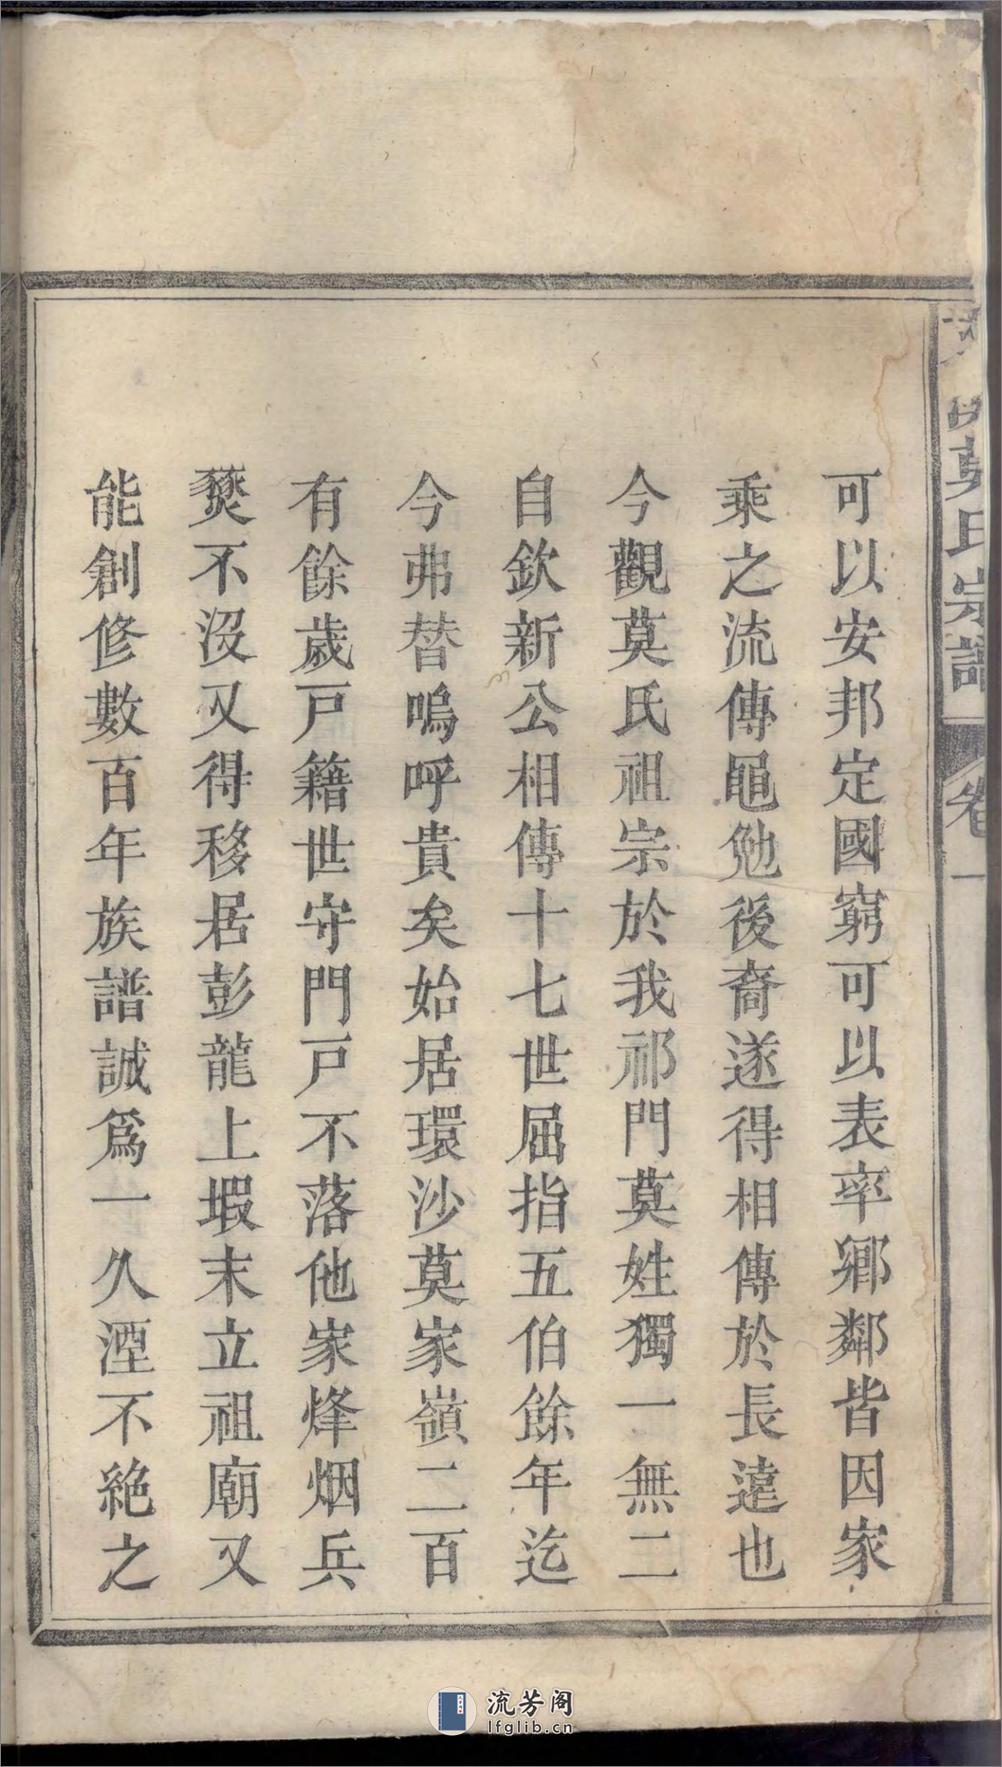 可以安邦定國窮可以表率鄉鄰皆因家
乘之流傳黽勉後裔遂得相傳於長遠也
今觀莫氏祖宗於我祁門莫姓獨一無二
自欽新公相傳十七世屈指五伯餘年迄
今弗替嗚呼貴矣始居環沙莫家嶺二百
有餘歲戸籍世守門戸不落他家烽烟兵
燹不沒又得移居彭龍上塅末立祖廟又
能創修數百年族譜誠爲一久湮不絶之
莫氏宗譜 卷一
流芳阁
lfglib.cn